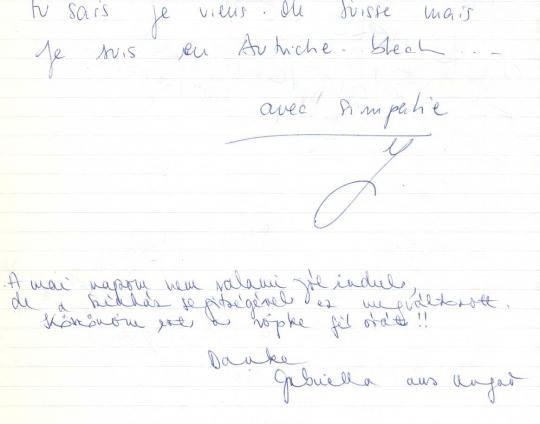 tu sais je viens de Suisse mais
je suis en Autriche. bleah ...
avec simpatie
A mai napom nem valami jól indult,
de a színház segítségével ez megváltozott.
Köszönöm ezt a röpke fél órát!!
Danke
Gabriella aus Ungar